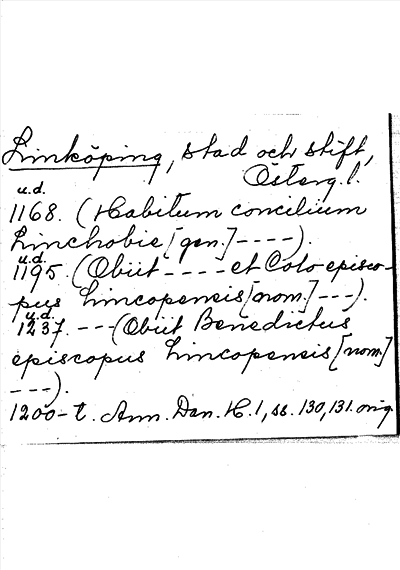 Linköping, stad och stift,
Österg.l.
u.d.
1168. (Habitum concilium
Linchobie [gen.] ----).
u.d.
1195. (Obiit ---- et Colo episco-
pus Lincopensis [nom.] ---).
u.d.
1237. --- (Obiit Benedictus
episcopus Lincopensis [nom.]
---).
1200-t. Ann. Dan. H. 1, ss. 130, 131. orig.